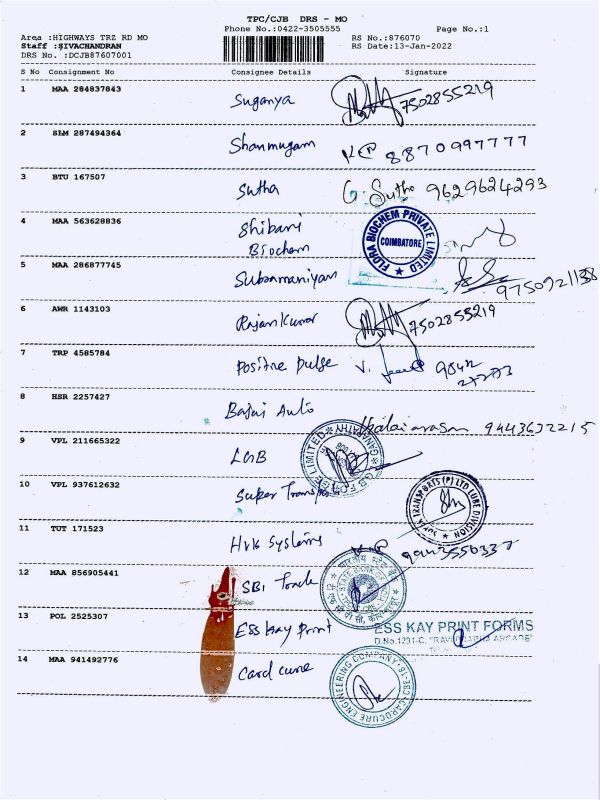 TPC/CJB DRS - MO
Phone No.:0422-3505555 Page No.:1
Area :HIGHWAYS TRZ RD MO RS No.:876070
Staff :SIVACHANDRAN RS Date:13-Jan-2022
DRS No. :DCJB87607001
S No Consignment No Consignee Details Signature
1 MAA 284837843 Suganya 7502855219
2 SLM 287494364 Shanmugam 8870997777
3 BTU 167507 Sutha G. Sutha 9629624293
4 MAA 563628836 Shibani
Biochem
FLORA BIOCHEM PRIVATE LIMITED
COIMBATORE
5 MAA 286877745 Subramaniyam 9750921138
6 AWR 1143103 Rajamkumar 7502855219
7 TRP 4585784 Positive pulse
8 HSR 2257427 Bajaj Auto Kalaiarasan 9443632215
9 VPL 211665322 LGB
10 VPL 937612632 Super Transports
TRANSPORTS (P) LTD LUBE DIVISION
11 TUT 171523 Hvk Systems
12 MAA 856905441 SBI Track
STATE BANK OF INDIA
13 POL 2525307 ESS Kay Print
ESS KAY PRINT FORMS
D.No.1231-C, "RAVI PRABHA ARCADE"
14 MAA 941492776 Card cure
CARDCURE ENGINEERING COMPANY